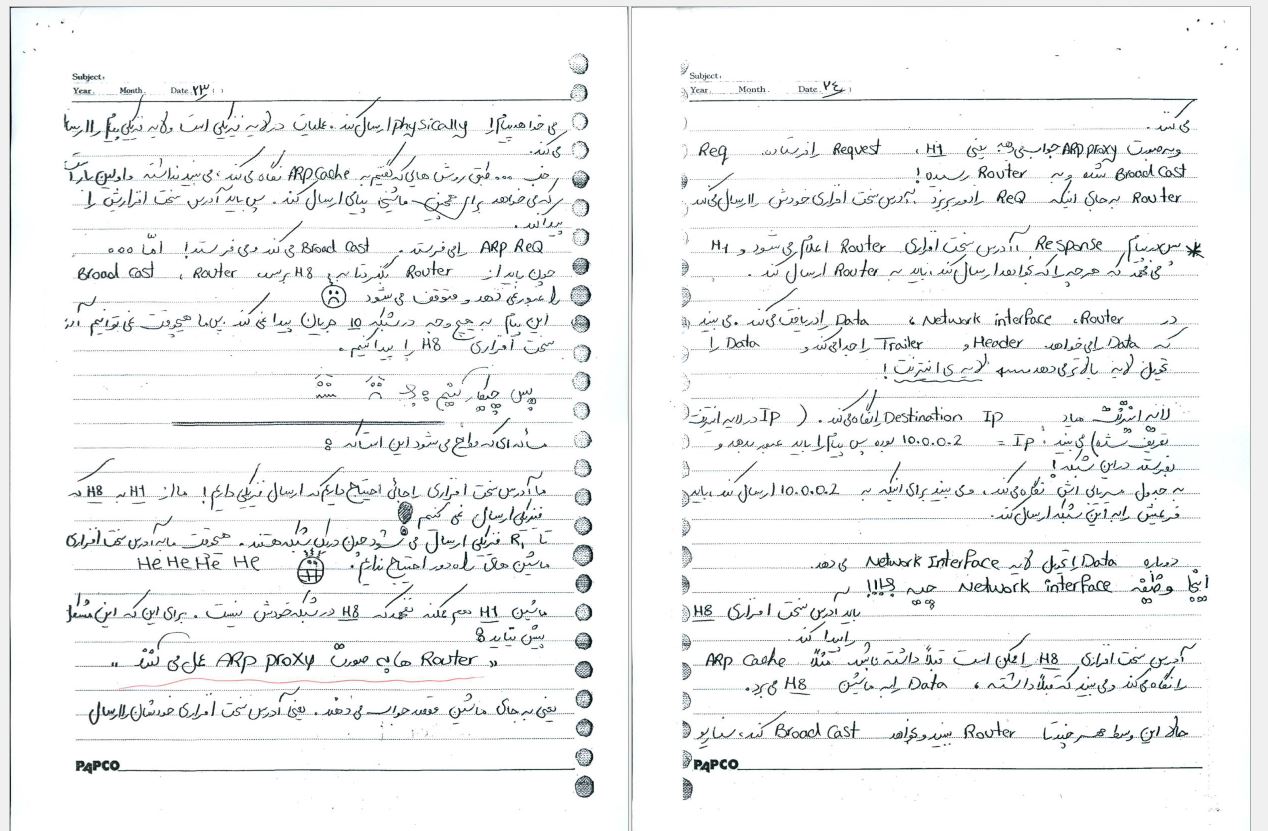 Subject:
Year. Month. Date. ۲۳ ( )
می خواهد پیام را physically ارسال کند. عملیات در لایه فیزیکی است و لایه فیزیکی پیام را ارسال
می کند.
خب ... طبق روش هایی که گفتیم به ARP cache نگاه می کند، می بیند نداشته و اولین بار است
که می خواهد برای همچین ماشینی پیامی ارسال کند. پس باید آدرس سخت افزاریش را
پیدا کند.
ARP Req را می فرستد. Broad Cast می کند و می فرستد! امّا ...
چون باید از Router بگذرد تا به H8 برسد، Router، Broad cast
را عبور نمی دهد و متوقف می شود
این پیام به هیچ وجه در شبکه 10 جریان پیدا نمی کند. پس ما هیچوقت نمی توانیم آدرس
سخت افزاری H8 را پیدا کنیم.
پس چیکار کنیم؟
مسأله ای که واضح می شود این است که:
ما آدرس سخت افزاری را جائی احتیاج داریم که ارسال فیزیکی داریم! ما از H1 به H8 که
فیزیکی ارسال نمی کنیم
تا R1 فیزیکی ارسال می شود چون در یک شبکه هستند. هیچوقت ما به آدرس سخت افزاری
ماشین های راه دور احتیاج نداریم. He He He He
ماشین H1 هم ممکنه نفهمد که H8 در شبکه خودش نیست. برای این که این مشکل
پیش نیاید:
« Router ها به صورت ARP proxy عمل می کنند »
یعنی به جای ماشین مقصد جواب می دهند. یعنی آدرس سخت افزاری خودشان را ارسال
PAPCO
Subject:
Year. Month. Date. ۲۴ ( )
می کنند.
و به صورت ARP proxy جواب می دهد یعنی H1، Request را فرستاده. Req
Broad Cast شده و به Router رسیده!
Router به جای اینکه Req را دور بریزد آدرس سخت افزاری خودش را ارسال می کند
* پس در پیام Response آدرس سخت افزاری Router اعلام می شود و H1
می فهمد که هرچه را که بخواهد ارسال کند، باید به Router ارسال کند.
در Router، Network interface، Data را دریافت می کند. می بیند
که Data را می خواهد. Header و Trailer را جدا می کند و Data را
تحویل لایه بالاتر می دهد لایه ی اینترنت!
لایه اینترنت میاد Destination Ip را نگاه می کند. (Ip در لایه اینترنت
تعریف شده) می بیند: Ip = 10.0.0.2 بوده پس پیام را باید عبور بدهد و
بفرستد در این شبکه!
به جدول مسیریابی اش نگاه می کند، و می بیند برای اینکه به 10.0.0.2 ارسال کند، باید
فریمش را به این شبکه ارسال کند.
دوباره Data را تحویل لایه Network Interface می دهد.
اینجا وظیفه Network interface چیه ؟!!!
باید آدرس سخت افزاری H8
را پیدا کند.
آدرس سخت افزاری H8 را ممکن است قبلاً داشته باشد. مثلاً ARP Cache
را نگاه می کند و می بیند که قبلاً داشته، Data را به ماشین H8 می برد.
حالا این وسط هر چند تا Router ببیند و بخواهد Broad Cast کند، سناریو
PAPCO